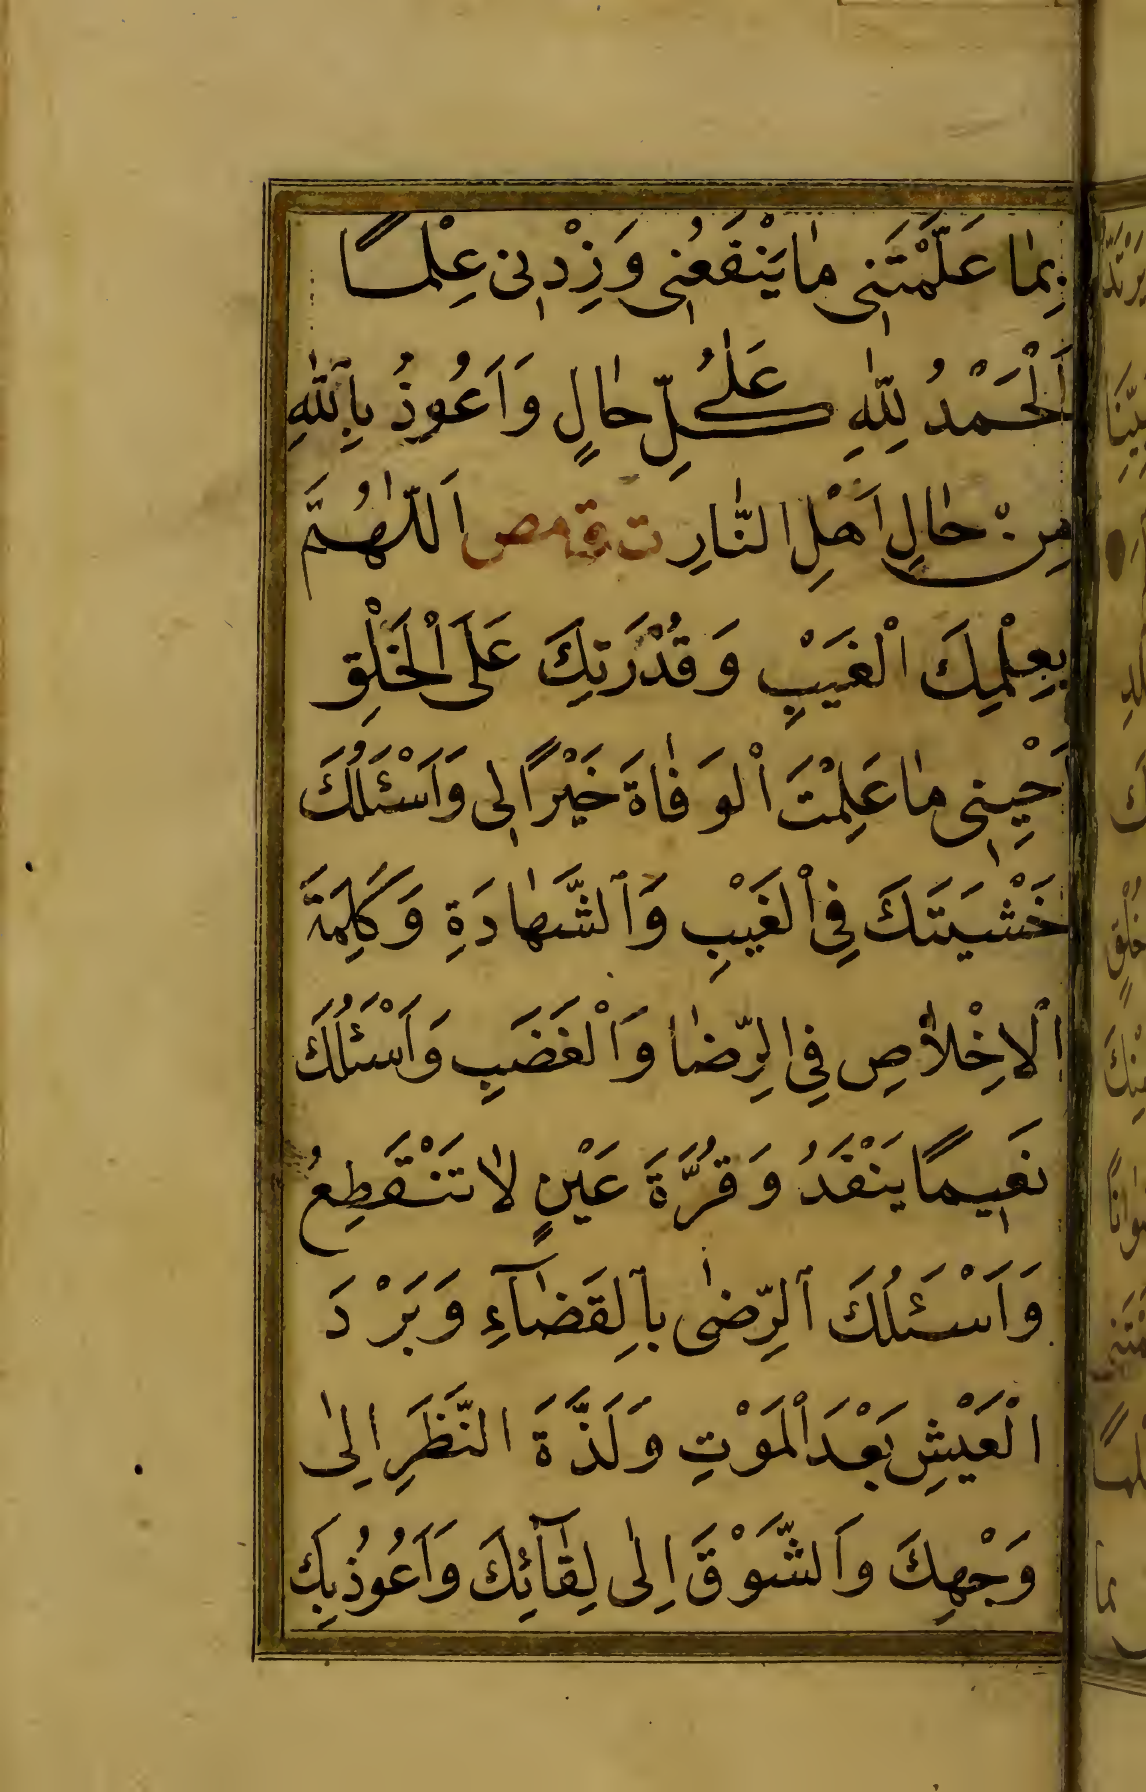 بِمٰا عَلَّمْتَنٖى مٰا يَنْفَعُنٖى وَزِدْنٖى عِلْمـًا
اَلْحَمْدُ لِلّٰهِ عَلٰى كُلِّ حٰالٍ وَاَعُوذُ بِاللّٰهِ
مِنْ حٰالِ اَهْلِ النّٰارِ ت ق مص اَللّٰهُمَّ
بِعِلْمِكَ الْغَيْبِ وَقُدْرَتِكَ عَلَى الْخَلْقِ
اَحْيِنٖى مٰا عَلِمْتَ الْوَفٰاةَ خَيْرًا لٖى وَاَسْئَلُكَ
خَشْيَتَكَ فِى الْغَيْبِ وَالشَّهٰادَةِ وَكَلِمَةَ
الْاِخْلٰاصِ فِى الرِّضٰا وَالْغَضَبِ وَاَسْئَلُكَ
نَعٖيمًا يَنْفَدُ وَقُرَّةَ عَيْنٍ لٰا تَنْقَطِعُ
وَاَسْئَلُكَ الرِّضٰى بِالْقَضٰٓاءِ وَبَرْدَ
الْعَيْشِ بَعْدَ الْمَوْتِ وَلَذَّةَ النَّظَرِ اِلٰى
وَجْهِكَ وَالشَّوْقَ اِلٰى لِقٰٓائِكَ وَاَعُوذُ بِكَ